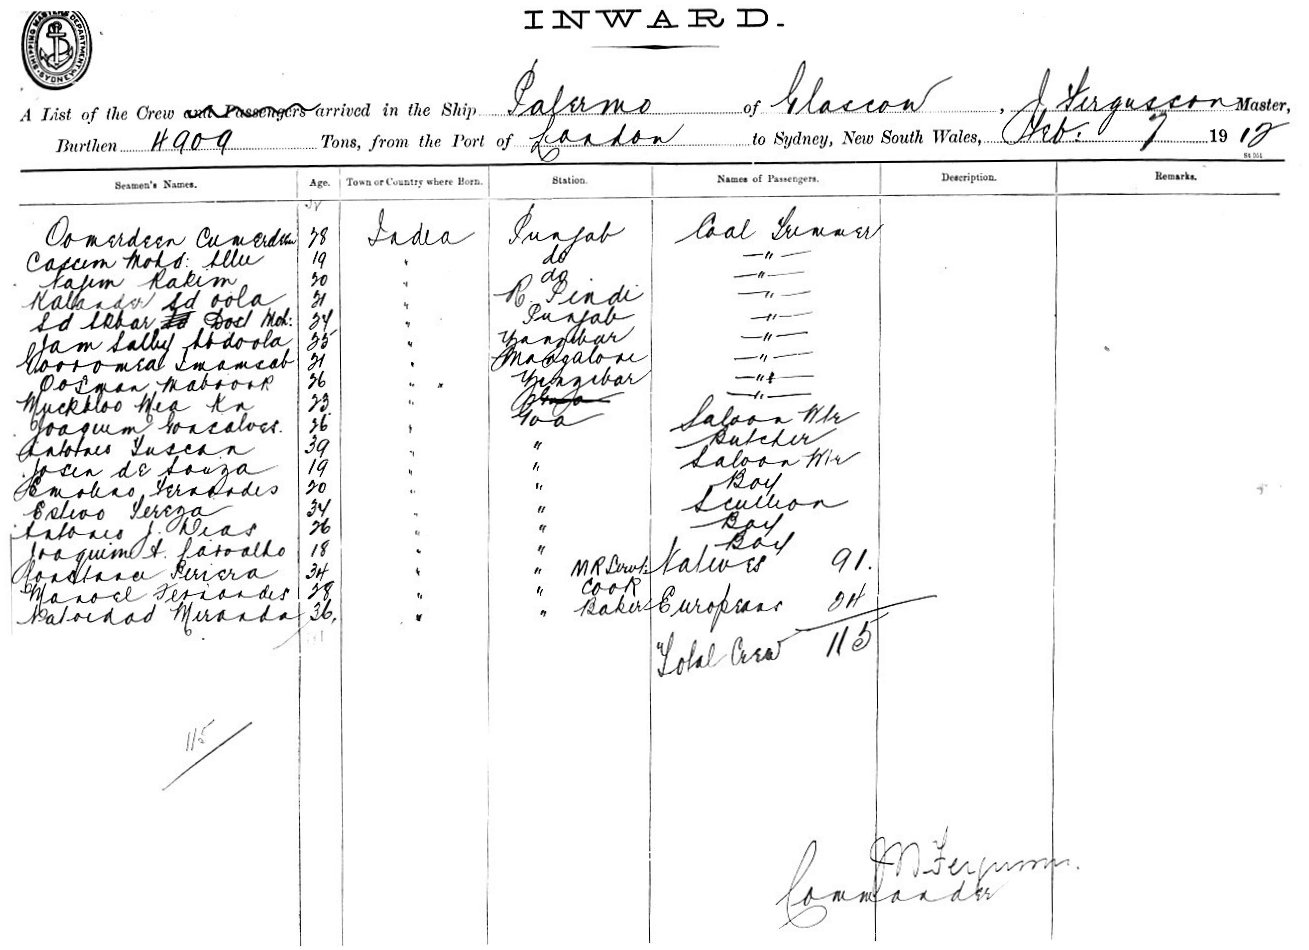 INWARD.
SHIPPING MASTERS DEPARTMENT SYDNEY
A List of the Crew and Passengers arrived in the Ship Palermo of Glascow, J. Fergusson Master,
Burthen 4909 Tons, from the Port of London to Sydney, New South Wales, Feb. 7 1912
Seamen's Names. Age. Town or Country where Born. Station. Names of Passengers. Description. Remarks.
Oomerdeen Cumerdeen 28 India Punjab Coal Trimmer
Cassim Mohd. Allie 19 " do —"—
Rahim 20 " do —"—
Kallander Sd oola 21 " R. Pindi —"—
Sd Akbar Sd Dost Moh: 24 " Punjab —"—
Jam Salby Abdoola 25 " Zanzibar —"—
Imamsab 21 " Mangalore —"—
Oosman Mabrook 26 " Zanzibar —"—
Muckbloo Mea Kn 23 " —"—
Joaquim Gonsalves. 26 " Goa Saloon Wtr
Antonio Tuscan 39 " " Butcher
de Souza 19 " " Saloon Wtr
Fernandes 20 " " Boy
Estivo 34 " " Scullion
Antonio J. Dias 26 " " Boy
Joaquim A. Carvalho 18 " " Boy
Periera 34 " " M R Servt. Natives 91.
Manoel Fernandes 28 " " Cook
Natividad Miranda 36. " " Baker Europeans 24
Total Crew 115
115
Commander